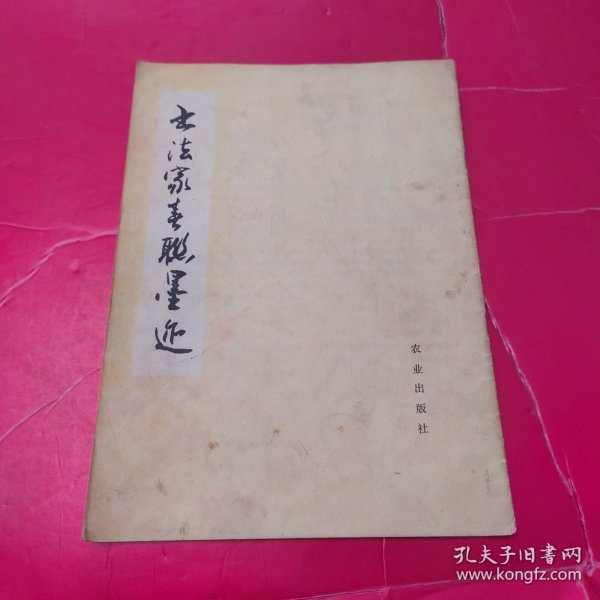 书法家春联墨迹
农业出版社
孔夫子旧书网
www.kongfz.com